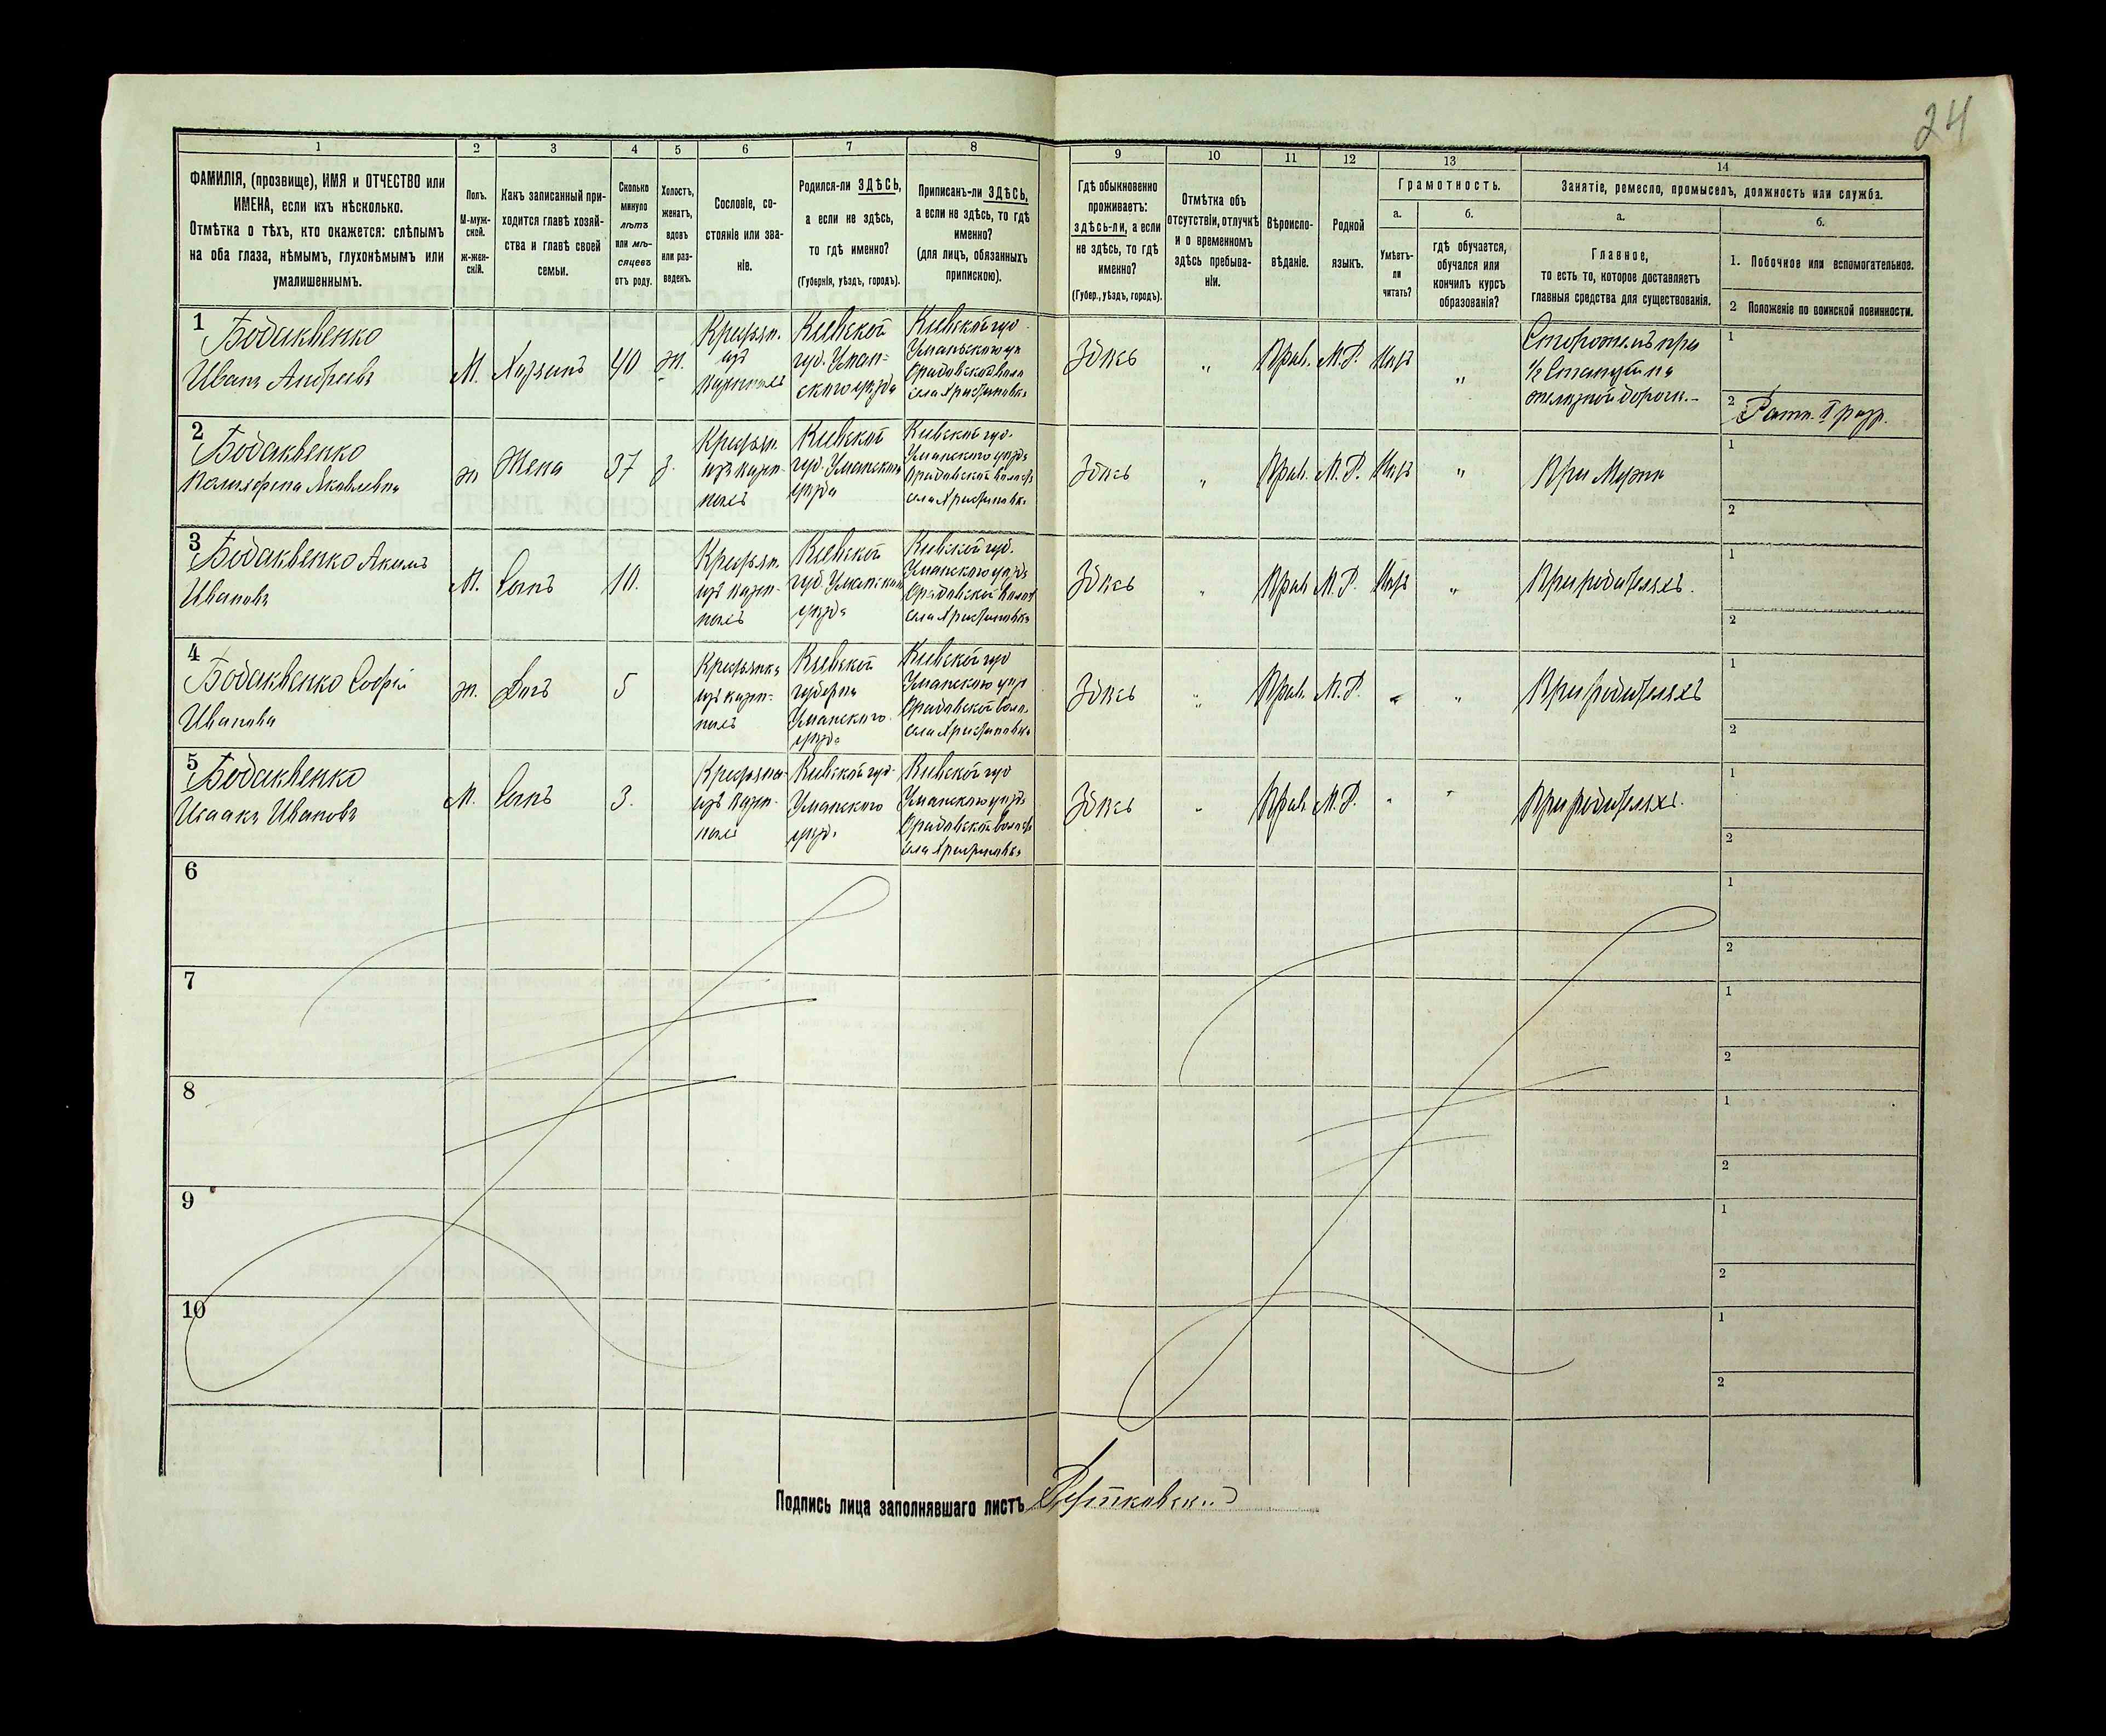 24
1 2 3 4 5 6 7 8 9 10 11 12 13 14
ФАМИЛІЯ, (прозвище), ИМЯ и ОТЧЕСТВО или
ИМЕНА, если ихъ нѣсколько.
Отмѣтка о тѣхъ, кто окажется: слѣпымъ
на оба глаза, нѣмымъ, глухонѣмымъ или
умалишеннымъ.
Полъ.
М-муж-
ской.
ж-жен-
скій.
Какъ записанный при-
ходится главѣ хозяй-
ства и главѣ своей
семьи.
Сколько
минуло
лѣтъ
или мѣ-
сяцевъ
отъ роду.
Холостъ,
женатъ,
вдовъ
или раз-
веденъ.
Сословіе, со-
стояніе или зва-
ніе.
Родился-ли ЗДѢСЬ,
а если не здѣсь,
то гдѣ именно?
(Губернія, уѣздъ, городъ).
Приписанъ-ли ЗДѢСЬ,
а если не здѣсь, то гдѣ
именно?
(для лицъ, обязанныхъ
припискою).
Гдѣ обыкновенно
проживаетъ:
здѣсь-ли, а если
не здѣсь, то гдѣ
именно?
(Губер., уѣздъ, городъ).
Отмѣтка объ
отсутствіи, отлучкѣ
и о временномъ
здѣсь пребыва-
ніи.
Вѣроиспо-
вѣданіе.
Родной
языкъ.
Грамотность.
а.
Умѣетъ-
ли
читать?
б.
гдѣ обучается,
обучался или
кончилъ курсъ
образованія?
Занятіе, ремесло, промыселъ, должность или служба.
а.
Главное,
то есть то, которое доставляетъ
главныя средства для существованія.
б.
1. Побочное или вспомогательное.
2 Положеніе по воинской повинности.
1
Бодаквенко
Иванъ Андреевъ
М.
Хозяинъ
40
ж.
Крестян.
изъ
Кіевской
губ. Уман-
скаго уѣзда
Кіевской губ.
Уманскаго
села Христиновка
Здѣсь
„
Прав.
М.Р.
Нѣтъ
„
Сторожемъ при
желѣзной дороги.-
1
2 Ратн. II разр.
2
Бодаквенко
Яковлевна
ж
Жена
37
з.
Крестян.
изъ
Кіевской
губ. Уманскаго
уѣзда
Кіевской губ.
Уманскаго уѣзда
села Христиновка
Здѣсь
„
Прав.
М.Р.
Нѣтъ
„
При Мужѣ
1
2
3
Бодаквенко Акимъ
Ивановъ
М.
Сынъ
10.
Крестян.
изъ
Кіевской
губ. Уманскаго
уѣзда
Кіевской губ.
Уманскаго уѣзда
села Христиновка
Здѣсь
„
Прав
М.Р.
Нѣтъ
„
При родителяхъ.
1
2
4
Бодаквенко Софія
Иванова
ж.
Дочь
5
изъ
Кіевской
Уманскаго
уѣзда
Кіевской губ
Уманскаго
села Христиновка
Здѣсь
„
Прав.
М.Р.
„
„
При родителяхъ
1
2
5
Бодаквенко
Исаакъ Ивановъ
М.
Сынъ
3.
изъ
Кіевской губ.
Уманскаго
уѣзда
Кіевской губ
Уманскаго уѣзда
села Христиновка
Здѣсь
„
Прав.
М.Р.
„
„
При родителяхъ.
1
2
6
1
2
7
1
2
8
1
2
9
1
2
10
1
2
Подпись лица заполнявшаго листъ